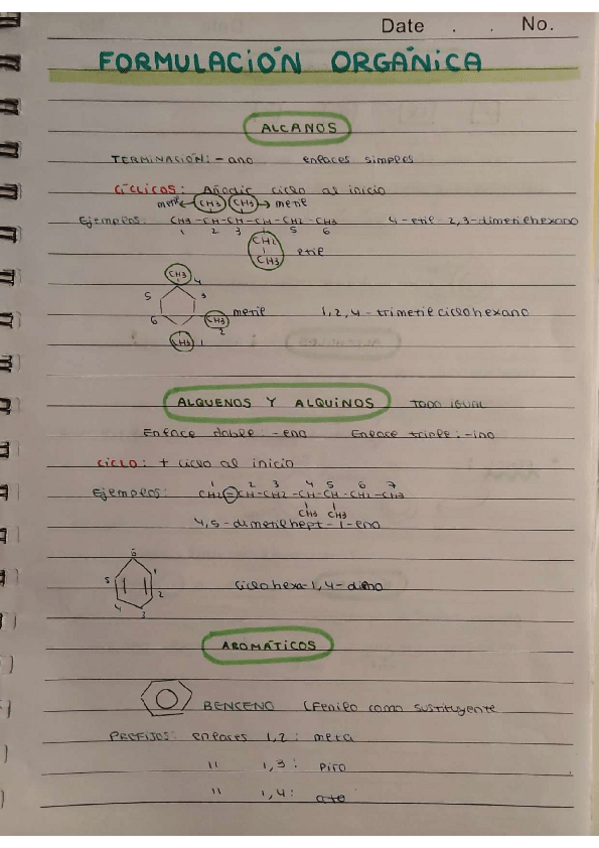 Date . . No.
FORMULACIÓN ORGÁNICA
ALCANOS
TERMINACIÓN: -ano enlaces simples
CÍCLICOS: Añadir ciclo al inicio
metil ← CH3 CH3 → metil
Ejemplos: CH3 - CH - CH - CH - CH2 - CH3 4-etil-2,3-dimetilhexano
1 2 3 5 6
CH2
CH3 etil
CH3 4
5 3
6 CH3 metil 1,2,4-trimetilciclohexano
2
CH3 1
ALQUENOS Y ALQUINOS TODO IGUAL
Enlace doble: -eno Enlace triple: -ino
CICLO: + ciclo al inicio
1 2 3 4 5 6 7
Ejemplos: CH2 = CH - CH2 - CH - CH - CH2 - CH3
CH3 CH3
4,5-dimetilhept-1-eno
6
5 1
ciclohexa-1,4-dieno
4 2
3
AROMÁTICOS
BENCENO (Fenilo como sustituyente
PREFIJOS: enlaces 1,2: meta
" 1,3: piro
" 1,4: